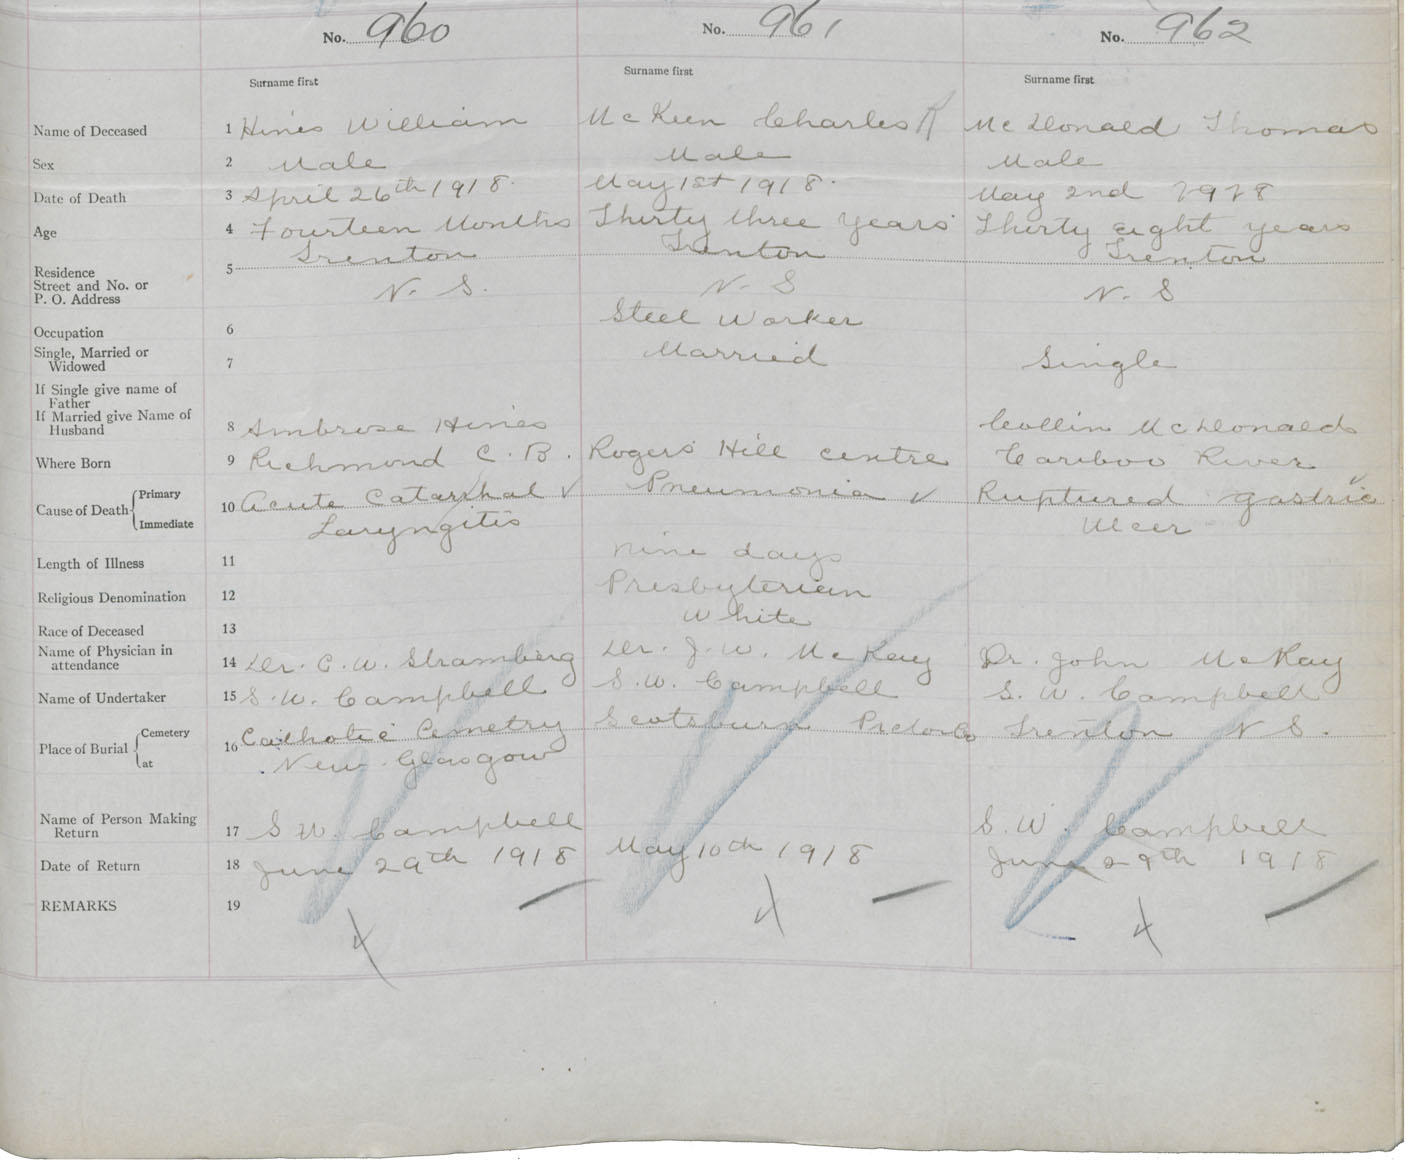 No. 960 No. 961 No. 962
Surname first Surname first Surname first
Name of Deceased 1 Hines William McKeen Charles R McDonald Thomas
Sex 2 Male Male Male
Date of Death 3 April 26th 1918. May 1st 1918. May 2nd 1918
Age 4 Fourteen Months Thirty three years Thirty eight years
5 Trenton Trenton Trenton
Residence
Street and No. or
P. O. Address N. S. N. S N. S
Occupation 6 Steel Worker
Single, Married or
Widowed 7 Married Single
If Single give name of
Father
If Married give Name of
Husband 8 Ambrose Hines Collin McDonald
Where Born 9 Richmond C. B. Rogers Hill centre Cariboo River
Cause of Death Primary 10 Acute Catarrhal Pneumonia Ruptured gastric
Immediate Laryngitis Ulcer
Length of Illness 11 nine days
Religious Denomination 12 Presbyterian
Race of Deceased 13 White
Name of Physician in
attendance 14 Dr. C. W. Stramberg Dr. J. W. McKay Dr. John McKay
Name of Undertaker 15 S. W. Campbell S. W. Campbell S. W. Campbell
Place of Burial Cemetery 16 Catholic Cemetry Scotsburn Pictou Co Trenton N S.
at New Glasgow
Name of Person Making
Return 17 S W. Campbell S. W. Campbell
Date of Return 18 June 29th 1918 May 10th 1918 June 29th 1918
REMARKS 19